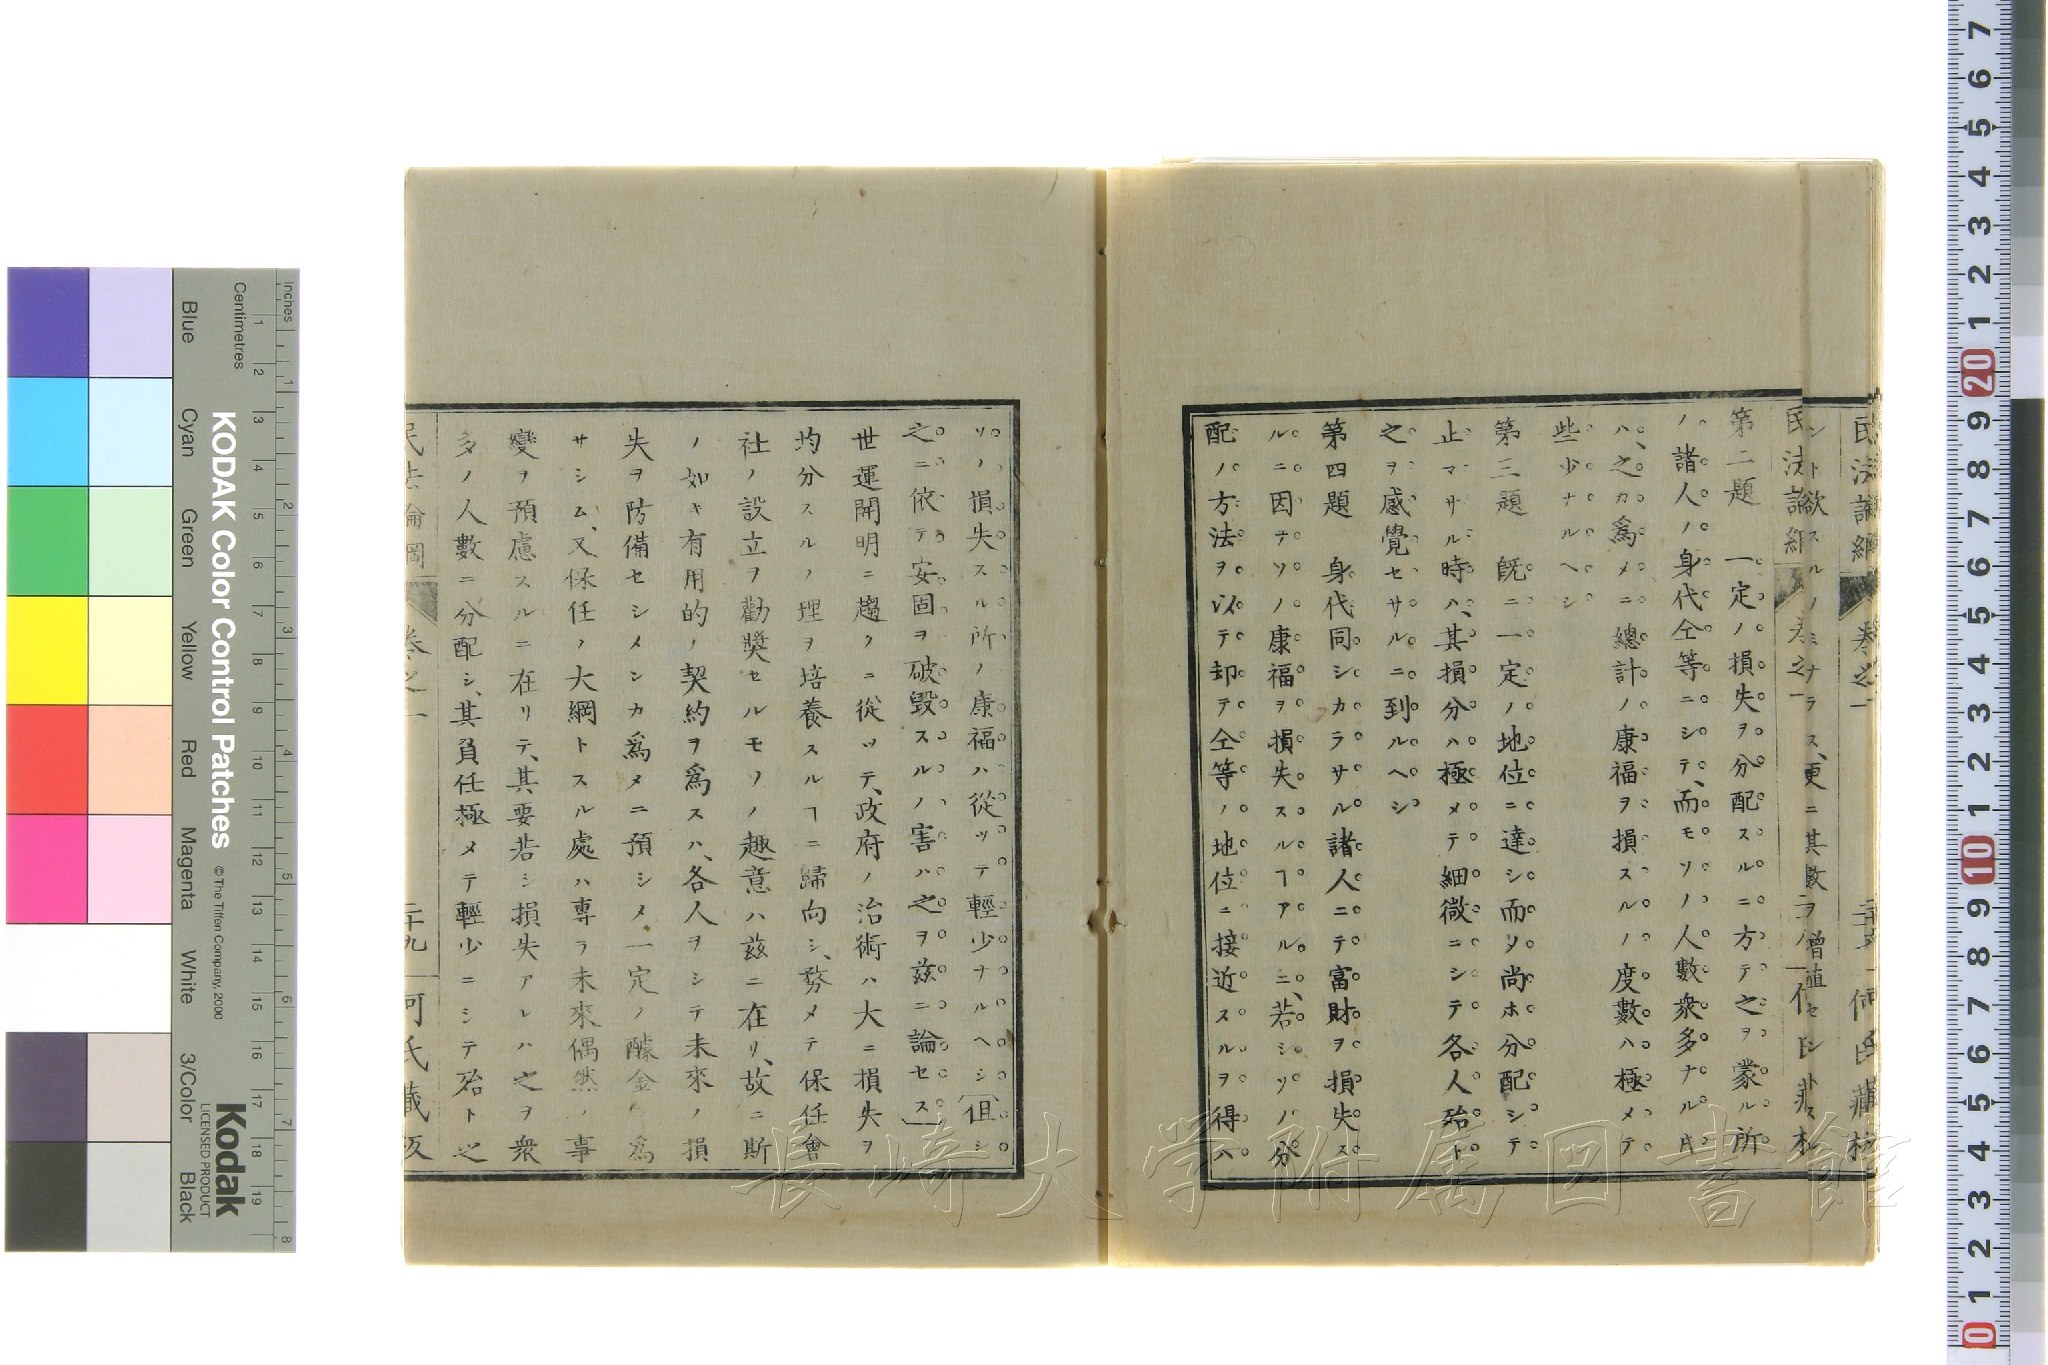 第二題　一定ノ損失ヲ分配スルニ方テ之ヲ蒙ル所
ノ諸人ノ身代仝等ニシテ、而モソノ人數衆多ナル片
ハ、之カ爲メニ總計ノ康福ヲ損スルノ度數ハ極メテ
些少ナルヘシ
第三題　既ニ一定ノ地位ニ達シ而シテ尚ホ分配シテ
止マサル時ハ、其損分ハ極メテ細微ニシテ各人殆ト
之ヲ感覺セサルニ到ルヘシ
第四題　身代同シカラサル諸人ニテ富財ヲ損失ス
ルニ因テソノ康福ヲ損失スルヿアルニ、若シソノ分
配ノ方法ヲ以テ却テ仝等ノ地位ニ接近スルヲ得ハ
ソノ損失スル所ノ康福ハ從ツテ輕少ナルヘシ（但シ
之ニ依テ安固ヲ破毀スルノ害ハ之ヲ茲ニ論セス）
世運開明ニ趨クニ從ツテ、政府ノ治術ハ大ニ損失ヲ
均分スルノ理ヲ培養スルヿニ歸向シ、務メテ保任會
社ノ設立ヲ勸奬セルモソノ趣意ハ茲ニ在リ、故ニ斯
ノ如キ有用的ノ契約ヲ爲スハ、各人ヲシテ未來ノ損
失ヲ防備セシメンカ爲メニ預シメ一定ノ醵金ヲ爲
サシム、又保任ノ大綱トスル處ハ專ラ未來偶然ノ事
變ヲ預慮スルニ在リテ、其要若シ損失アレハ之ヲ衆
多ノ人數ニ分配シ、其負任極メテ輕少ニシテ殆ト之
民法論綱　卷之一　二十九　何氏藏版
長崎大学附属図書館
KODAK Color Control Patches
© The Tiffen Company, 2000
Kodak
LICENSED PRODUCT
Inches
Centimetres
Blue
Cyan
Green
Yellow
Red
Magenta
White
3/Color
Black